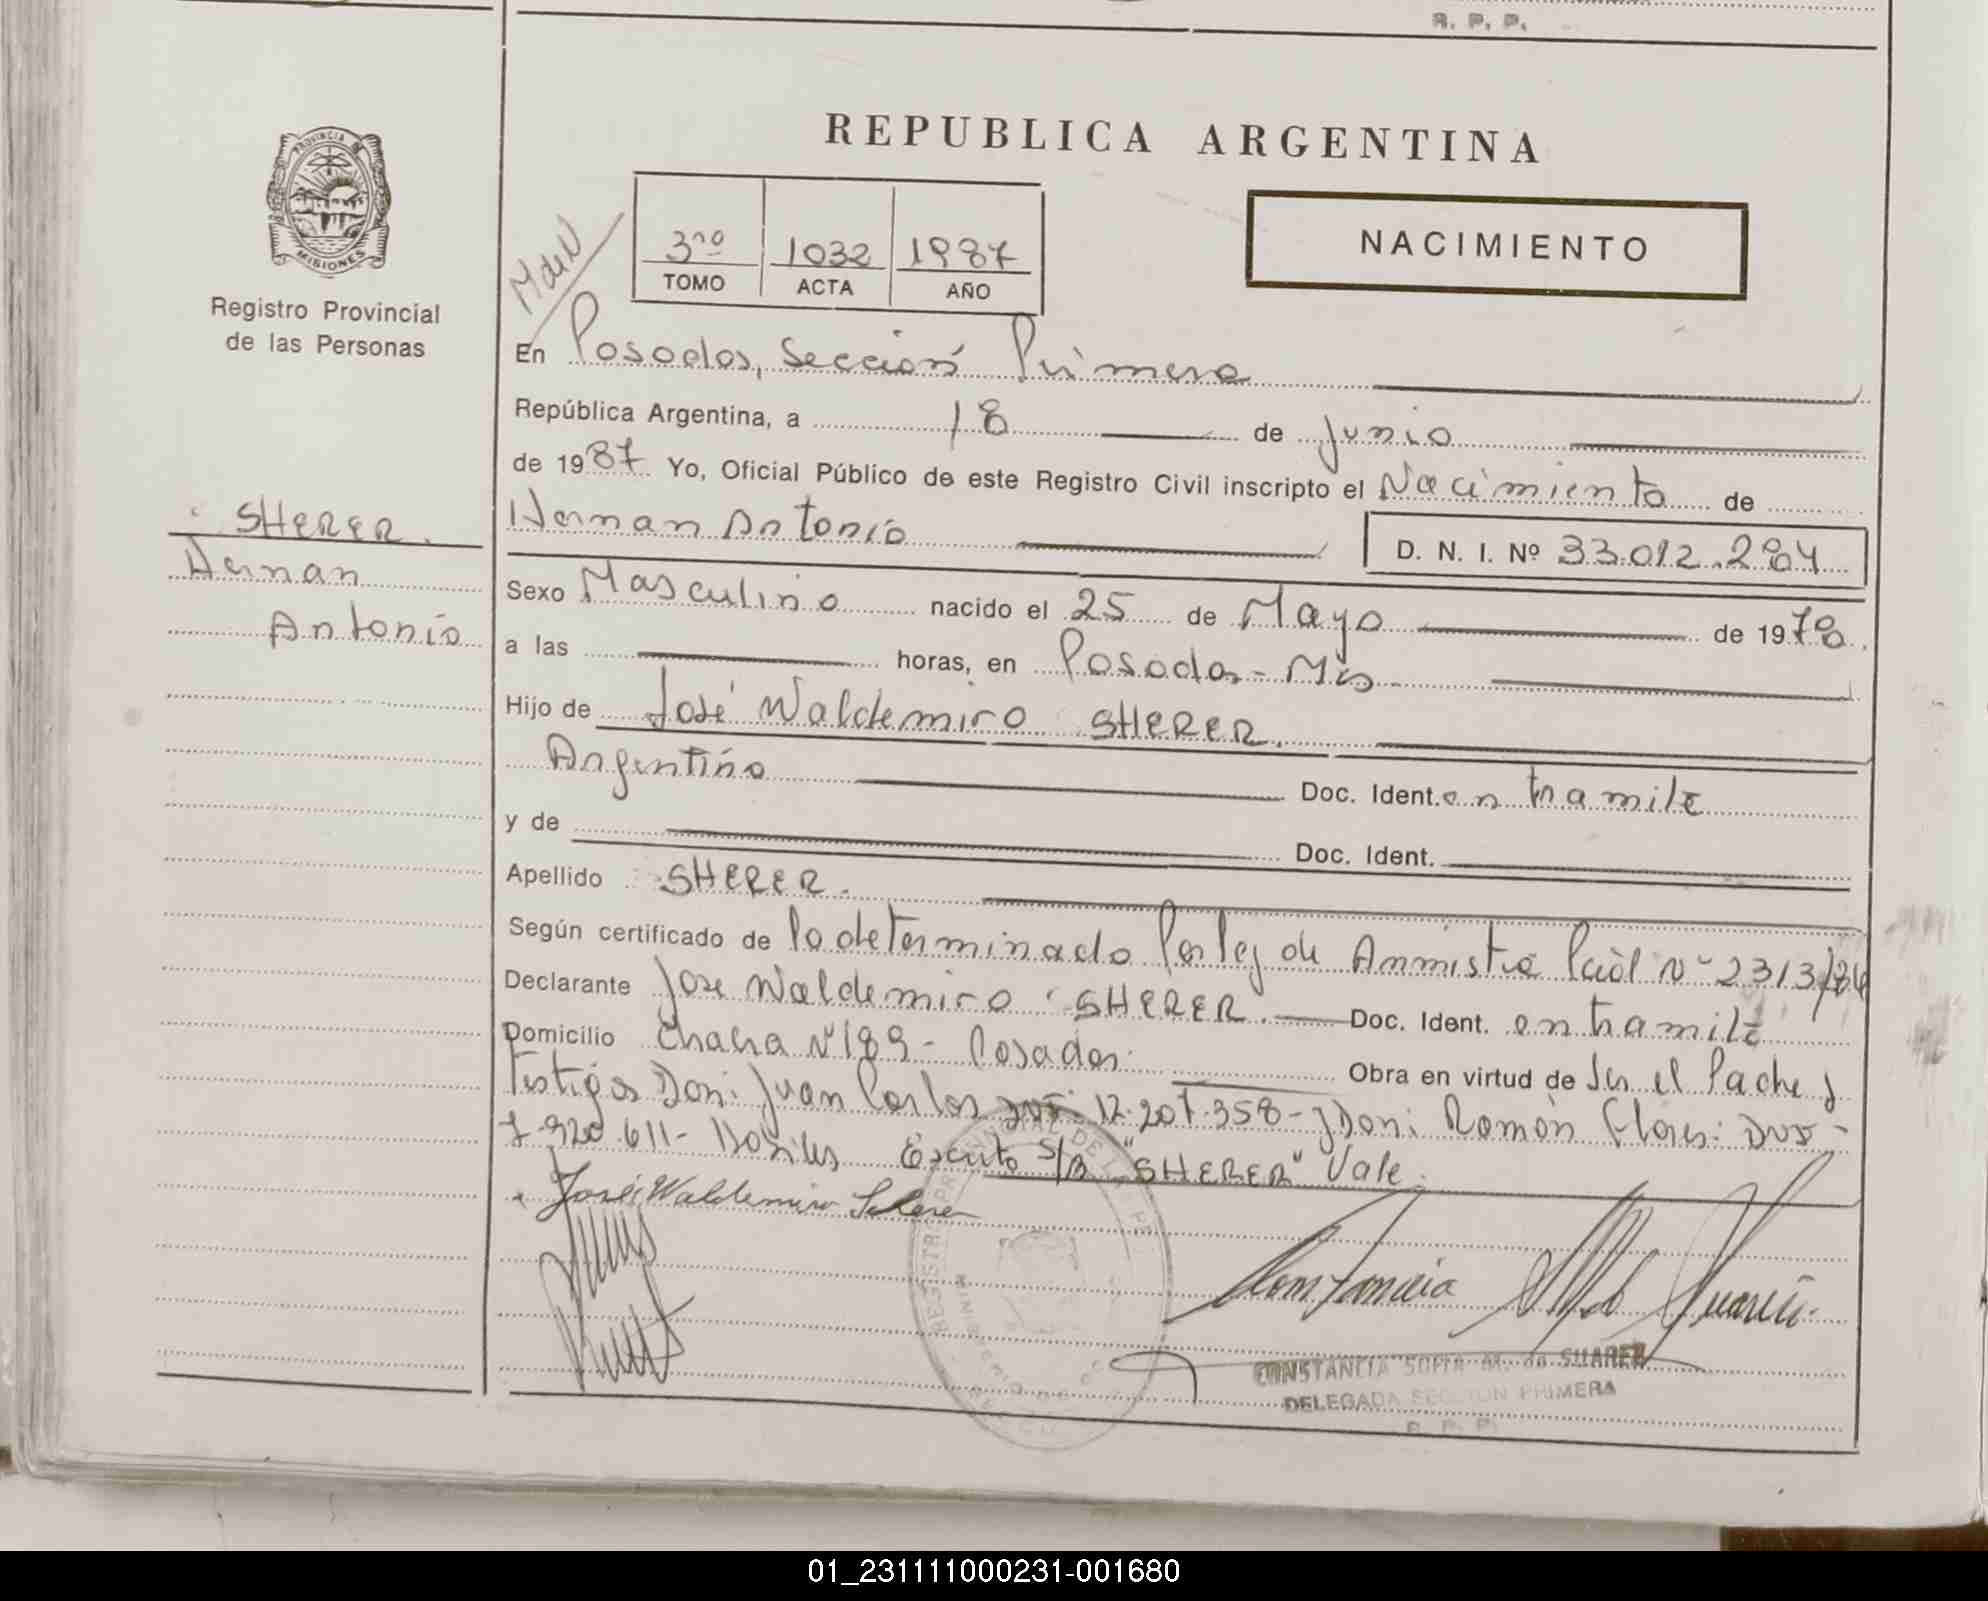 R. P. P.
REPUBLICA ARGENTINA
PROVINCIA
MISIONES
Registro Provincial
de las Personas
M de N
3ro 1032 1987
TOMO ACTA AÑO
NACIMIENTO
En Posadas, Sección Primera
República Argentina, a 18 de Junio
de 1987 Yo, Oficial Público de este Registro Civil inscripto el Nacimiento de
SHERER.
Hernan
Antonio
Hernan Antonio D. N. I. Nº 33.012.284
Sexo Masculino nacido el 25 de Mayo de 1978
a las horas, en Posadas - Mis
Hijo de José Waldemiro SHERER.
Argentino Doc. Ident. en tramite
y de Doc. Ident.
Apellido SHERER.
Según certificado de lo determinado Por ley de Ammistia Pcial Nº 2313/86
Declarante Jose Waldemiro SHERER. Doc. Ident. en tramite
Domicilio Chacra Nº 189 - Posadas. Obra en virtud de Ser el Padre y
Testigos Don: Juan Carlos 12.207.358 - y Don: Román Flores:
7.920.611 - Escrito S/R "SHERER" Vale.
José Waldemiro Sherer
CONSTANCIA SOFIA M. de SUAREZ
DELEGADA SECCION PRIMERA
R. P. P.
01_231111000231-001680